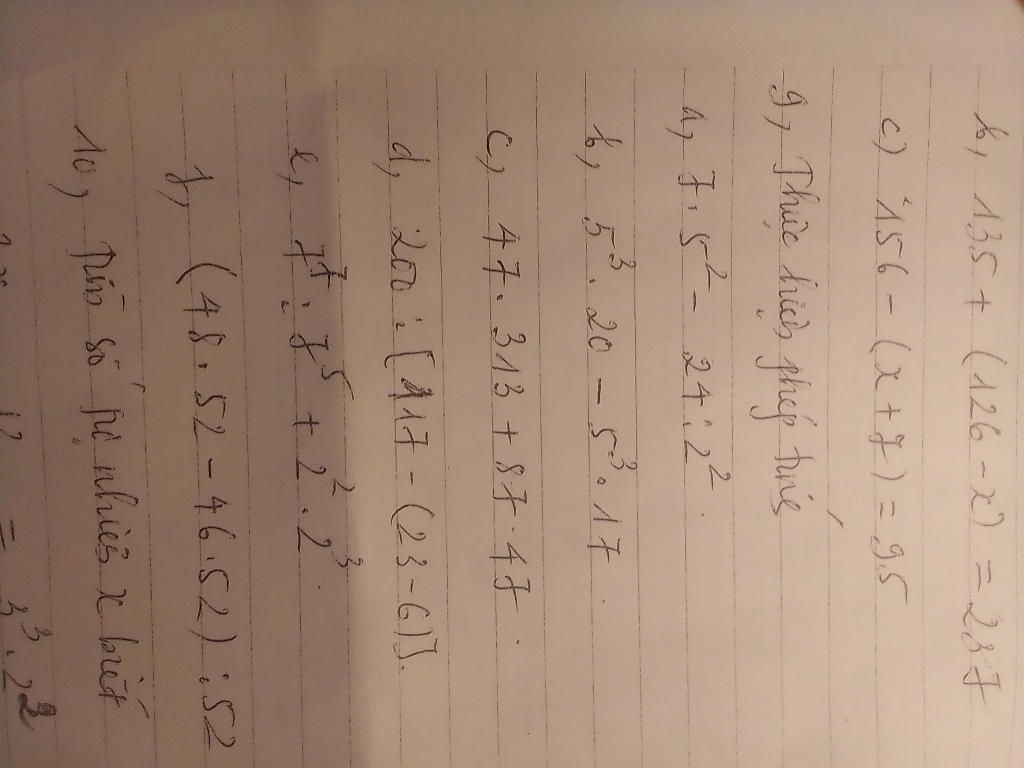 b, 135 + (126 - x) = 237
c) 156 - (x + 7) = 95
9, Thực hiện phép tính
a, 7 . 5² - 24 : 2² .
b, 5³ . 20 - 5³ . 17 .
c, 47 . 313 + 87 . 47 .
d, 200 : [117 - (23 - 6)].
e, 7⁷ : 7⁵ + 2² . 2³ .
f, (48 . 52 - 46 . 52) : 52
10, Tìm số tự nhiên x biết
= 3³ . 22